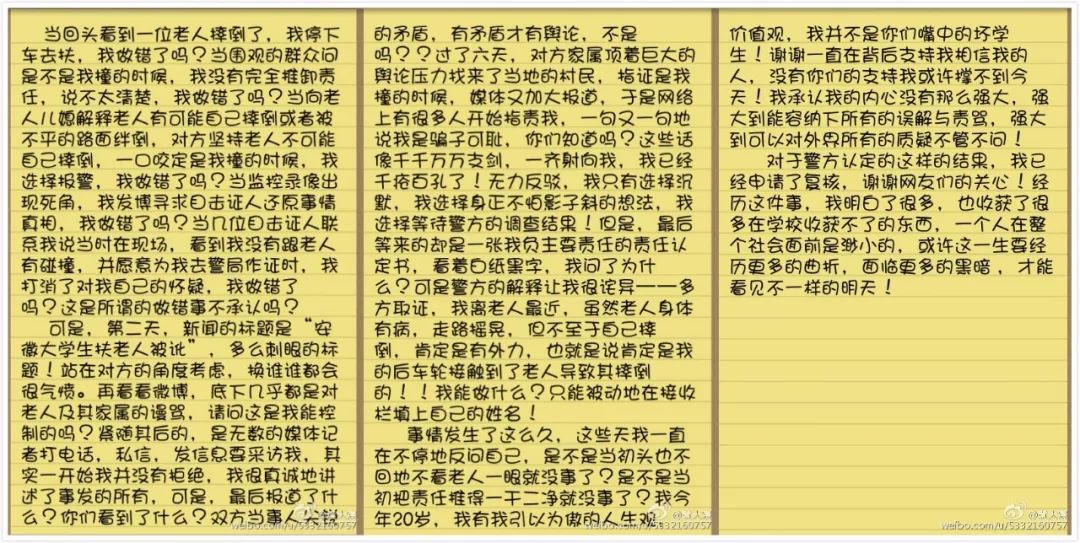 当回头看到一位老人摔倒了，我停下
车去扶，我做错了吗？当围观的群众问
是不是我撞的时候，我没有完全推卸责
任，说不太清楚，我做错了吗？当向老
人儿媳解释老人有可能自己摔倒或者被
不平的路面绊倒，对方坚持老人不可能
自己摔倒，一口咬定是我撞的时候，我
选择报警，我做错了吗？当监控录像出
现死角，我发博寻求目击证人还原事情
真相，我做错了吗？当几位目击证人联
系我说当时在现场，看到我没有跟老人
有碰撞，并愿意为我去警局作证时，我
打消了对我自己的怀疑，我做错了
吗？这是所谓的做错事不承认吗？
可是，第二天，新闻的标题是“安
徽大学生扶老人被讹”，多么刺眼的标
题！站在对方的角度考虑，换谁谁都会
很气愤。再看看微博，底下几乎都是对
老人及其家属的谩骂，请问这是我能控
制的吗？紧随其后的，是无数的媒体记
者打电话，私信，发信息要采访我，其
实一开始我并没有拒绝，我很真诚地讲
述了事发的所有，可是，最后报道了什
么？你们看到了什么？双方当事人
的矛盾，有矛盾才有舆论，不是
吗？？过了六天，对方家属顶着巨大的
舆论压力找来了当地的村民，指证是我
撞的时候，媒体又加大报道，于是网络
上有很多人开始指责我，一句又一句地
说我是骗子可耻，你们知道吗？这些话
像千千万万支剑，一齐射向我，我已经
千疮百孔了！无力反驳，我只有选择沉
默，我选择身正不怕影子斜的想法，我
选择等待警方的调查结果！但是，最后
等来的却是一张我负主要责任的责任认
定书，看着白纸黑字，我问了为什
么？可是警方的解释让我很诧异——多
方取证，我离老人最近，虽然老人身体
有病，走路摇晃，但不至于自己摔
倒，肯定是有外力，也就是说肯定是我
的后车轮接触到了老人导致其摔倒
的！！我能做什么？只能被动地在接收
栏填上自己的姓名！
事情发生了这么久，这些天我一直
在不停地反问自己，是不是当初头也不
回地不看老人一眼就没事了？是不是当
初把责任推得一干二净就没事了？我今
年20岁，我有我引以为傲的人生观
价值观，我并不是你们嘴中的坏学
生！谢谢一直在背后支持我相信我的
人，没有你们的支持我或许撑不到今
天！我承认我的内心没有那么强大，强
大到能容纳下所有的误解与责骂，强大
到可以对外界所有的质疑不管不问！
对于警方认定的这样的结果，我已
经申请了复核，谢谢网友们的关心！经
历这件事，我明白了很多，也收获了很
多在学校收获不了的东西，一个人在整
个社会面前是渺小的，或许这一生要经
历更多的曲折，面临更多的黑暗，才能
看见不一样的明天！
weibo.com/u/5332160757
weibo.com/u/5332160757
weibo.com/u/5332160757